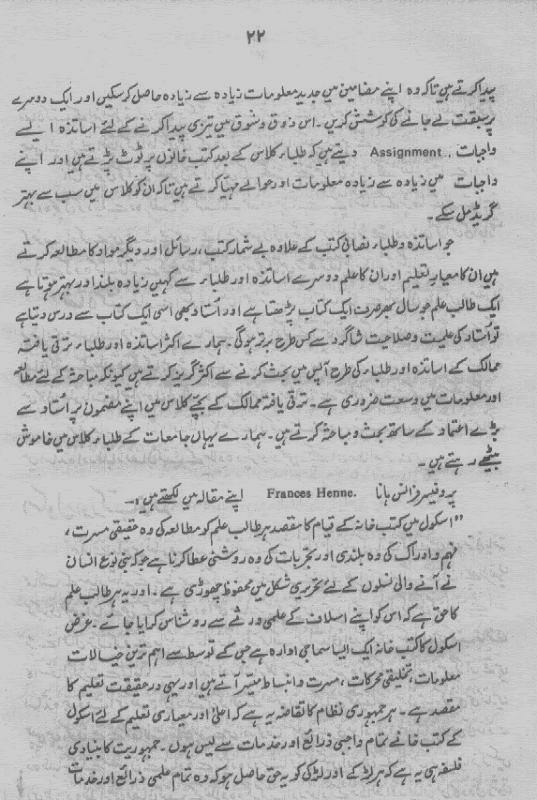 ۲۲
پیدا کرتے ہیں تاکہ وہ اپنے مضامین میں جدید معلومات زیادہ سے زیادہ حاصل کر سکیں اور ایک دوسرے
پر سبقت لے جانے کی کوشش کریں۔ اس ذوق و شوق میں تیزی پیدا کرنے کے لئے اساتذہ ایسے
واجبات Assignment. دیتے ہیں کہ طلباء کلاس کے بعد کتب خانوں پر ٹوٹ پڑتے ہیں اور اپنے
واجبات میں زیادہ سے زیادہ معلومات اور حوالے مہیا کرتے ہیں تاکہ ان کو کلاس میں سب سے بہتر
گریڈ مل سکے۔
جو اساتذہ و طلباء نصابی کتب کے علاوہ بے شمار کتب، رسائل اور دیگر مواد کا مطالعہ کرتے
ہیں ان کا معیارِ تعلیم اور ان کا علم دوسرے اساتذہ اور طلباء سے کہیں زیادہ بلند اور بہتر ہوتا ہے
ایک طالب علم جو سال بھر صرف ایک کتاب پڑھتا ہے اور اُستاد بھی اسی ایک کتاب سے درس دیتا ہے
تو اُستاد کی علمیت و صلاحیت شاگرد سے کس طرح برتر ہوگی۔ ہمارے اکثر اساتذہ اور طلباء ترقی یافتہ
ممالک کے اساتذہ اور طلباء کی طرح آپس میں بحث کرنے سے اکثر گریز کرتے ہیں کیونکہ مباحثہ کے لئے مطالعہ
اور معلومات میں وسعت ضروری ہے۔ ترقی یافتہ ممالک کے بچے کلاس میں اپنے مضمون پر اُستاد سے
بڑے اعتماد کے ساتھ بحث و مباحثہ کرتے ہیں۔ ہمارے یہاں جامعات کے طلباء کلاس میں خاموش
بیٹھے رہتے ہیں۔
پروفیسر فرانس ہانا Frances Henne. اپنے مقالہ میں لکھتے ہیں :۔
"اسکول میں کتب خانہ کے قیام کا مقصد ہر طالب علم کو مطالعہ کی وہ حقیقی مسرت،
فہم و ادراک کی وہ بلندی اور تجربات کی وہ روشنی عطا کرنا ہے جو کہ بنی نوع انسان
نے آنے والی نسلوں کے لئے تحریری شکل میں محفوظ چھوڑی ہے۔ اور یہ ہر طالب علم
کا حق ہے کہ اس کو اپنے اسلاف کے علمی ورثے سے روشناس کرایا جائے۔ غرض
اسکول کا کتب خانہ ایک ایسا سماجی ادارہ ہے جس کے توسط سے اہم ترین خیالات
معلومات، تخلیقی محرکات، مسرت و انبساط میسر آتے ہیں اور یہی درحقیقت تعلیم کا
مقصد ہے۔ ہر جمہوری نظام کا تقاضہ یہ ہے کہ اعلیٰ اور معیاری تعلیم کے لئے اسکول
کے کتب خانے تمام واجبی ذرائع اور خدمات سے لیس ہوں۔ جمہوریت کا بنیادی
فلسفہ ہی یہ ہے کہ ہر لڑکے اور لڑکی کو یہ حق حاصل ہو کہ وہ تمام علمی ذرائع اور خدمات